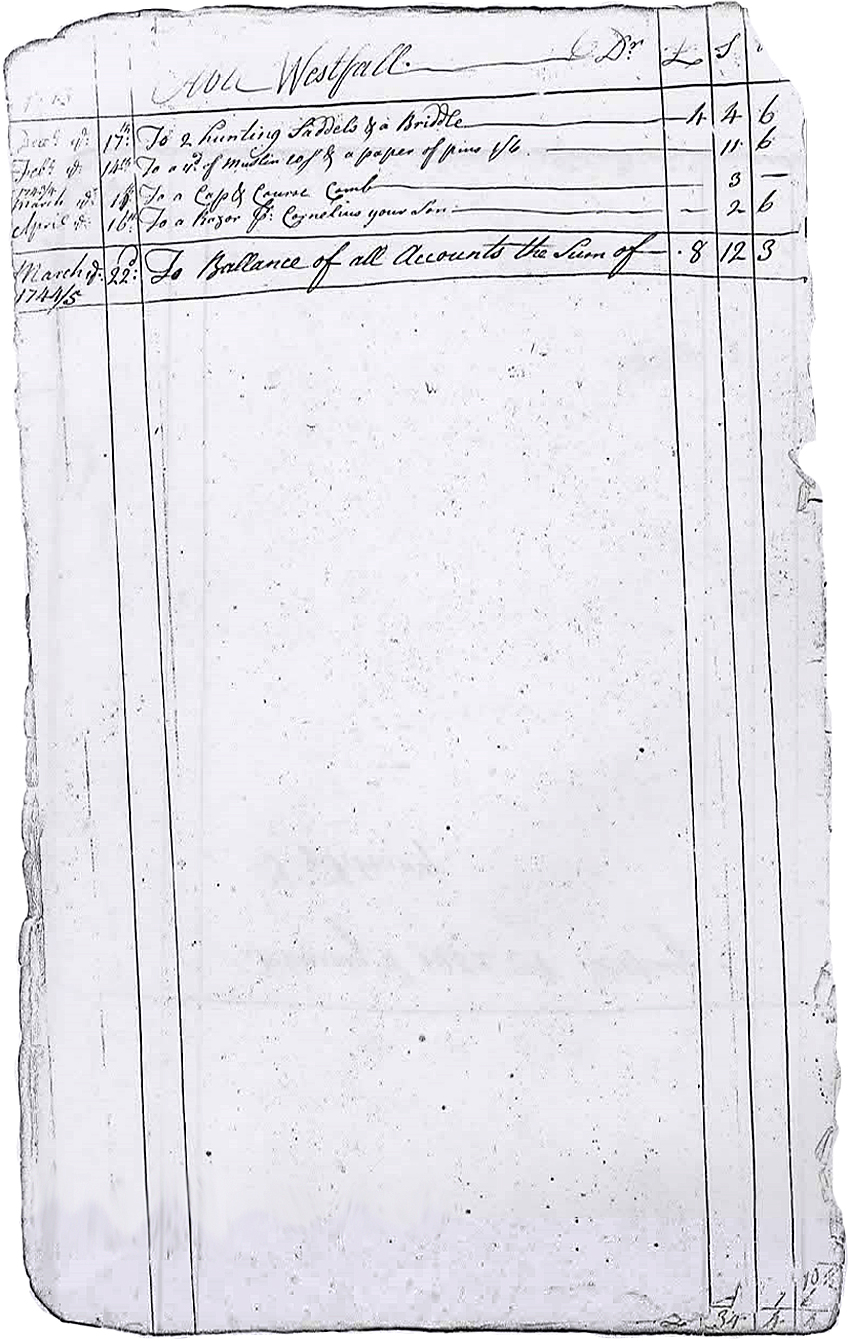 Westfall Dr £ S
Decr ye 17th To 2 hunting Saddels & a Briddle 4 4 6
Febr ye 14th To a yd of Muslin 10/ & a paper of pins 1/6 11 6
1743/4
March ye To a Cap & Comb 3 —
April ye 16th To a Razor pr Cornelius your Son 2 6
March ye 22d To Ballance of all Accounts the Sum of 8 12 3
1744/5